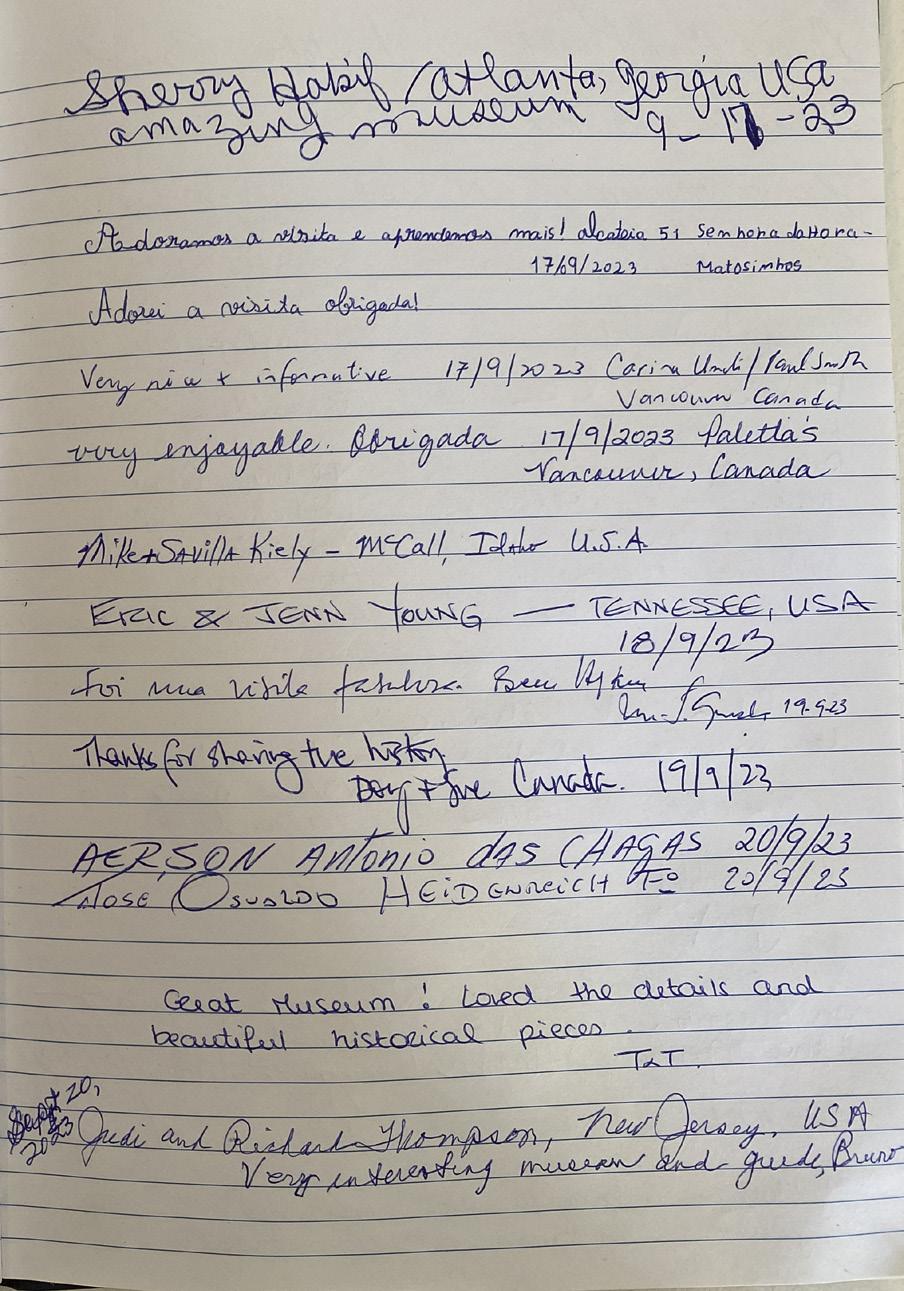 Sherry Habif / Atlanta, Georgia USA
amazing museum 9-17-23
Adoramos a visita e aprendemos mais! Alcateia 51 Senhora da Hora -
17/09/2023 Matosinhos
Adorei a visita obrigada!
Very nice + informative 17/9/2023 Carina / Paul Smith
Vancouver Canada
very enjoyable. Obrigada 17/9/2023 Paletta's
Vancouver, Canada
Mike + Savilla Kiely - McCall, Idaho U.S.A.
ERIC & JENN YOUNG — TENNESSEE, USA
18/9/23
Foi uma visita fabulosa.
19-9-23
Thanks for sharing the history
Canada. 19/9/23
AERSON Antonio dAS CHAGAS 20/9/23
JOSE OSVALDO HEIDENREICH Fº 20/9/23
Great Museum! Loved the details and
beautiful historical pieces.
T&T.
Sept 20,
2023
Judi and Richard Thompson, New Jersey, USA
Very interesting museum and guide, Bruno